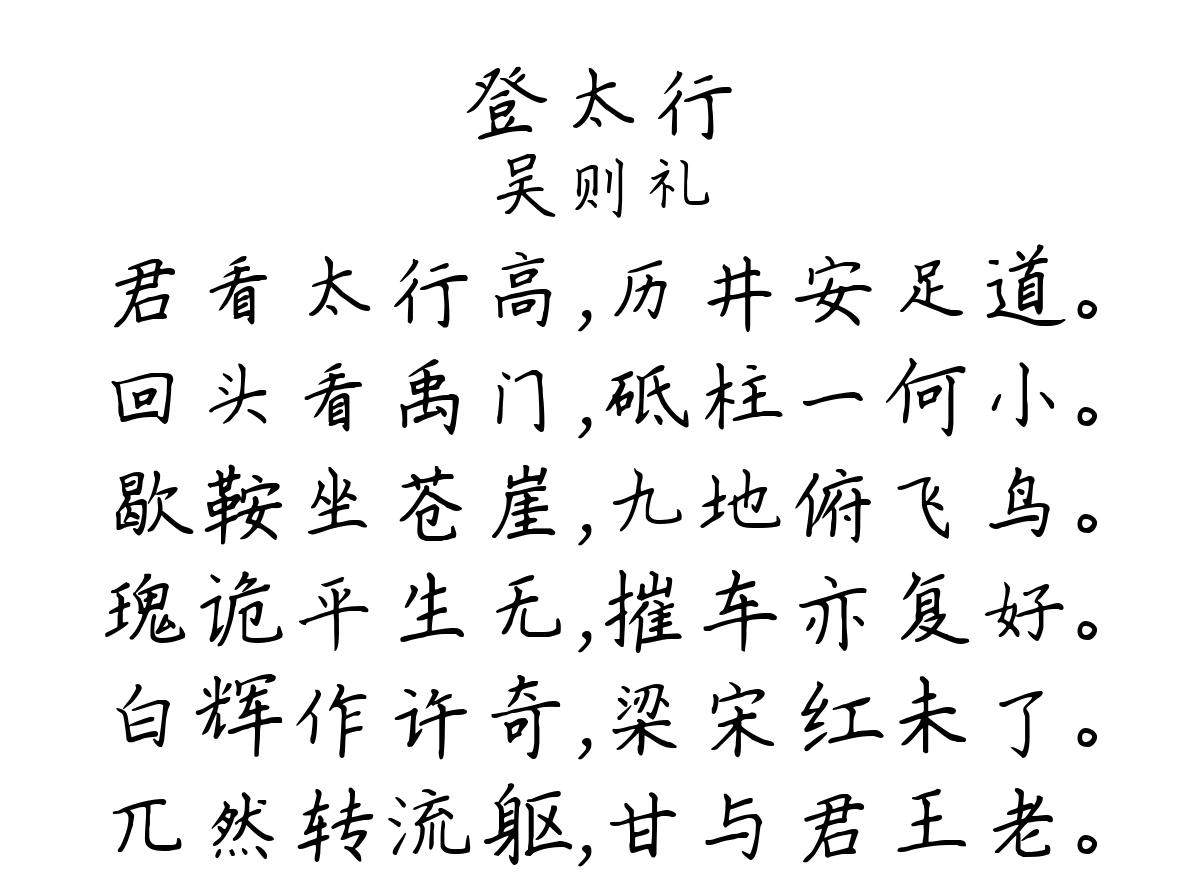 登太行
吴则礼
君看太行高,历井安足道。
回头看禹门,砥柱一何小。
歇鞍坐苍崖,九地俯飞鸟。
瑰诡平生无,摧车亦复好。
白辉作许奇,梁宋红未了。
兀然转流躯,甘与君王老。